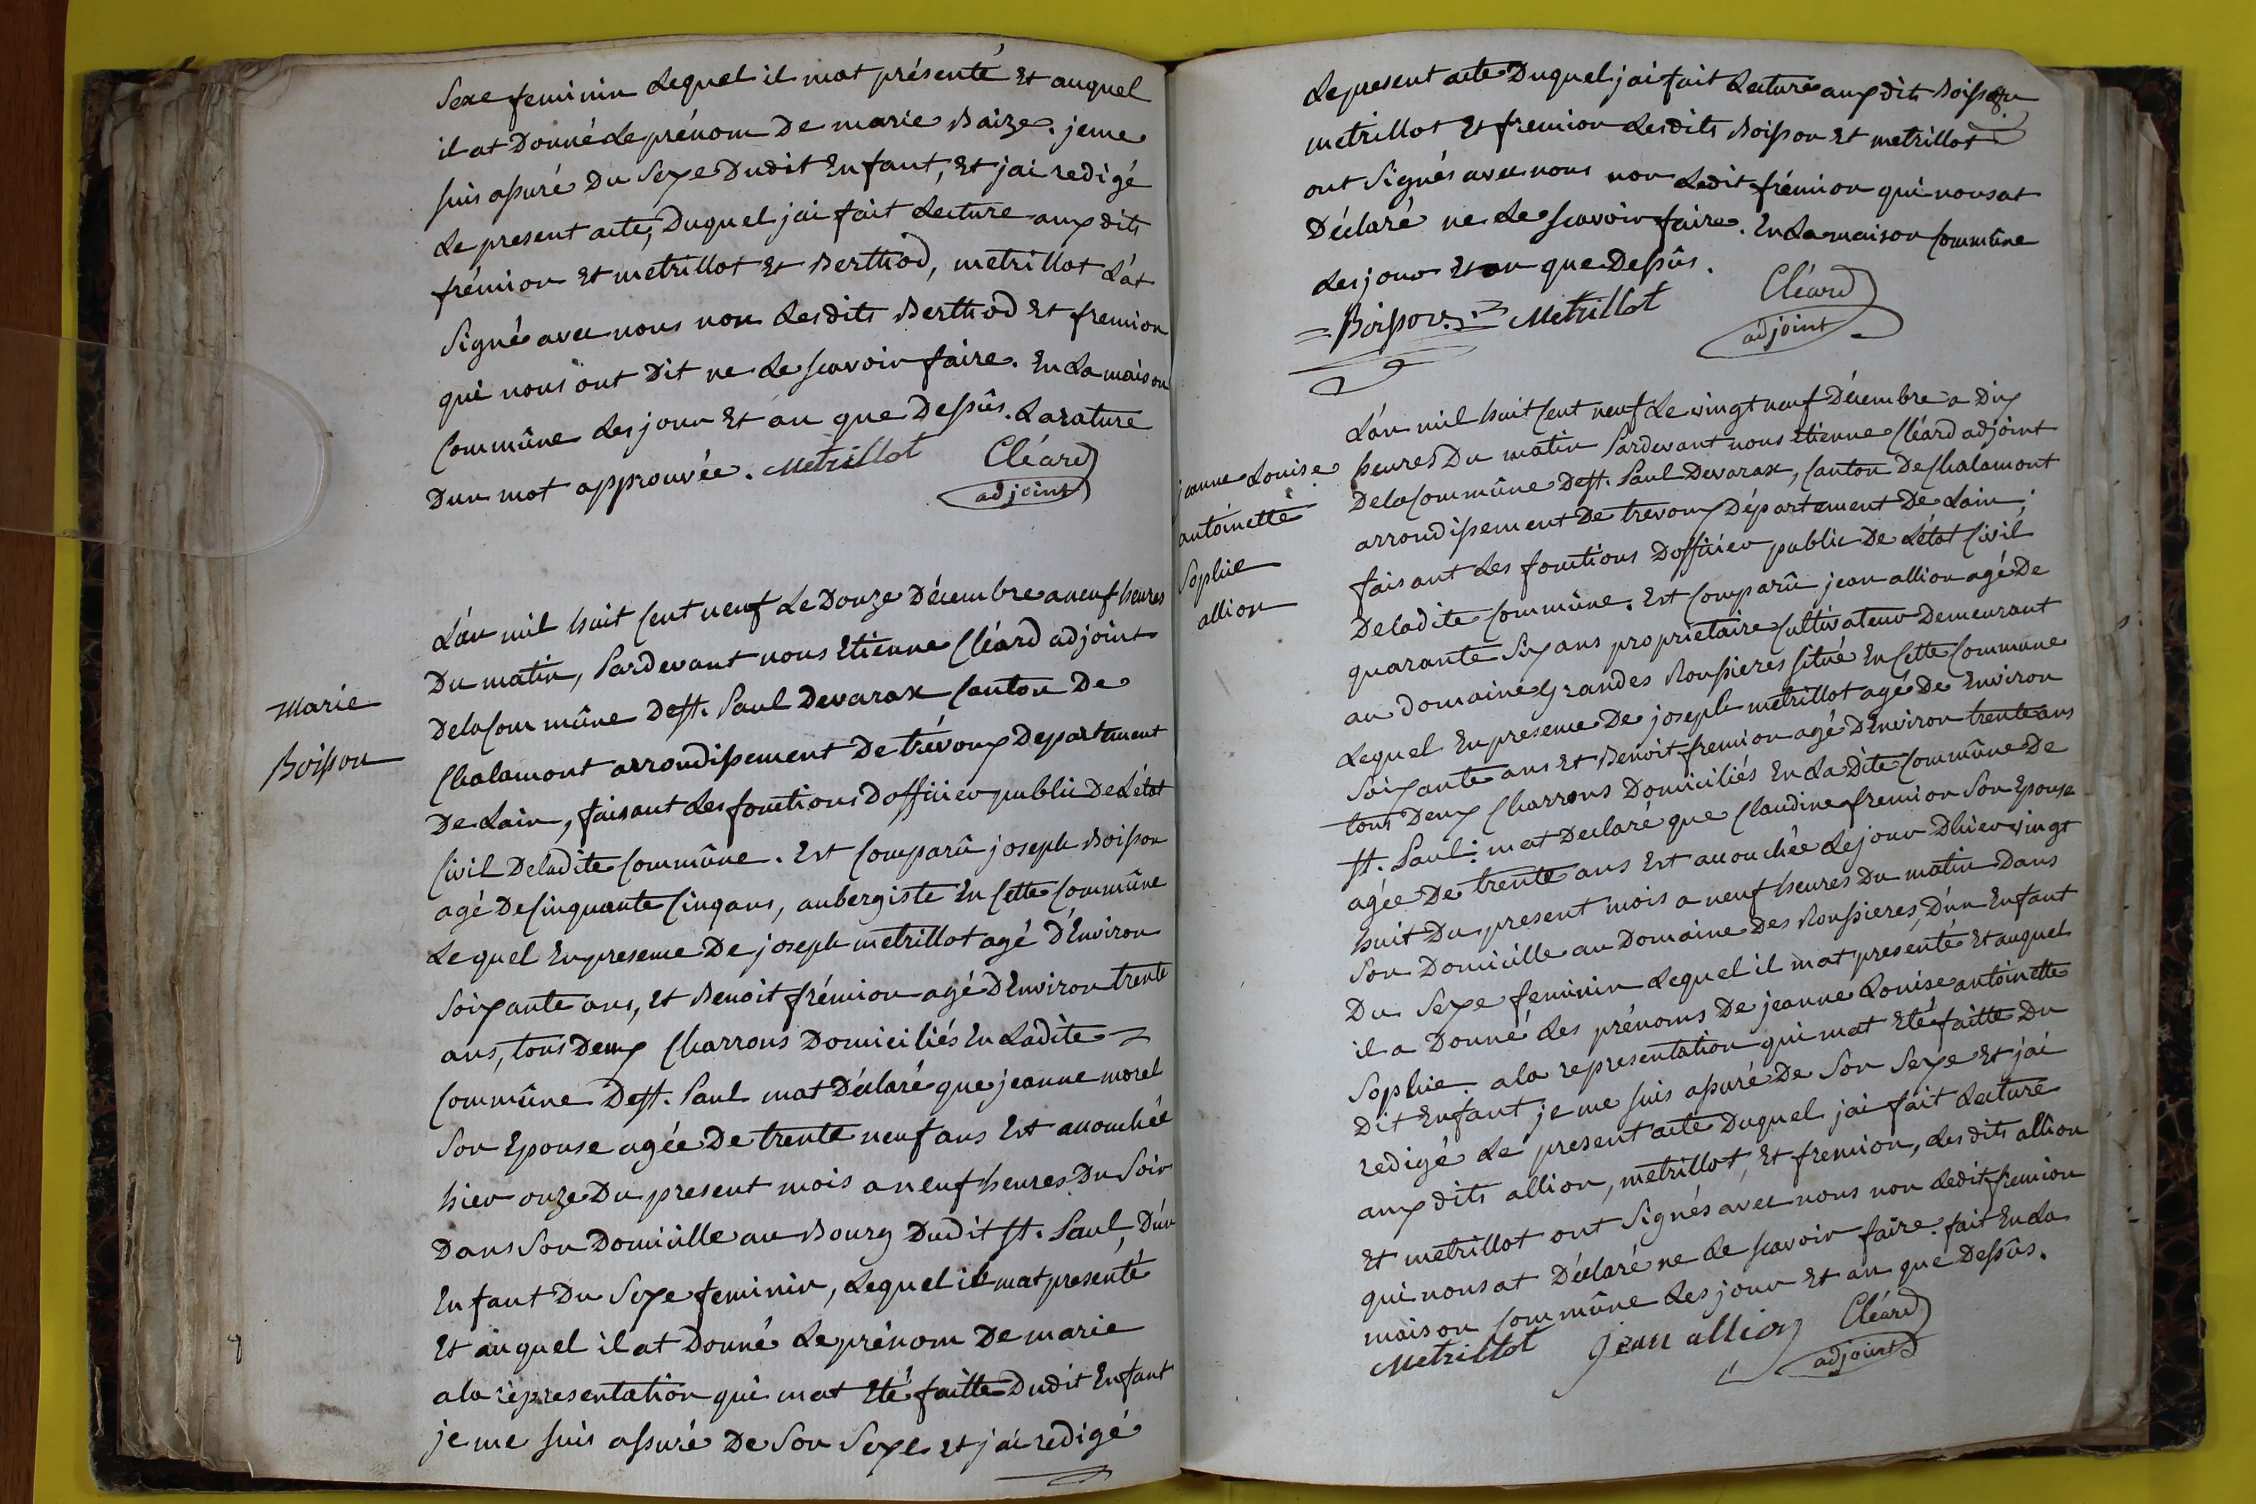 Sexe feminin Lequel il mat présenté Et auquel
il at Donné Le prénom De marie Baize. je me
suis assuré Du Sexe Dudit Enfant, Et jai redigé
Le present acte, Duquel jai fait Lecture auxdits
frémion Et métrillot Et Berthod, métrillot L'at
Signé avec nous non Lesdits Berthod Et fremion
qui nous ont Dit ne Le scavoir faire. En La maison
Commûne Les jour Et an que Dessûs. La rature
Dun mot approuvée. Metrillot Cléard
adjoint
Marie
Boisson
L'an mil huit Cent neuf Le Douze Décembre a neuf heures
Du matin, Pardevant nous Etienne Cléard adjoint
De la Commûne De St. Paul Devarax Canton De
Chalamont arrondissement De trévoux Departement
De Lain, faisant Les fonctions Dofficier public De L'état
Civil De ladite Commûne. Est Comparû joseph Boisson
agé De Cinquante Cinq ans, aubergiste En Cette Commûne
Lequel En presence De joseph metrillot agé D'Environ
Soixante ans, Et Benoit frémion agé D'Environ trente
ans, tous Deux Charrons Domiciliés En Ladite
Commûne De St. Paul mat Déclaré que jeanne morel
Son Epouse agée De trente neuf ans Est accouchée
hier onze Du present mois a neuf heures Du Soir
Dans Son Domicille au Bourg Dudit St. Paul, D'un
Enfant Du Sexe feminin, Lequel il mat presenté
Et auquel il at Donné Le prénom De marie
a la représentation qui mat Eté faitte Dudit Enfant
je me suis assuré De Son Sexe Et j'ai redigé
Le present acte Duquel jai fait Lecture auxdits Boisson
metrillot Et fremion Lesdits Boisson Et metrillot
ont Signés avec nous non Ledit frémion qui nous at
Déclaré ne Le scavoir faire. En La maison Commûne
Les jour Et an que Dessûs.
Boisson Metrillot Cléard
adjoint
jeanne Louise
antoinette
Sophie
allion
L'an mil huit Cent neuf Le vingt neuf Décembre a Dix
heures Du matin Pardevant nous Etienne Cléard adjoint
De la Commûne De St. Paul Devarax, Canton De Chalamont
arrondissement De trevoux Département De Lain,
faisant Les fonctions Dofficier public De L'état Civil
De ladite Commûne. Est Comparû jean allion agé De
quarante Six ans propriétaire Cultivateur Demeurant
au Domaine Grandes Roussieres Situé En Cette Commune
Lequel En presence De joseph metrillot agé De Environ
Soixante ans Et Benoit fremion agé D'Environ trente ans
tous Deux Charrons Domiciliés En La Dite Commûne De
St. Paul: mat Declaré que Claudine fremion Son Epouse
agée De trente ans Est accouchée Le jour Dhier vingt
huit Du present mois a neuf heures Du matin Dans
Son Domicille au Domaine Des Roussieres, D'un Enfant
Du Sexe feminin Lequel il mat presenté Et auquel
il a Donné Les prénoms De jeanne Louise antoinette
Sophie. a la representation qui mat Eté faitte Du
Dit Enfant je me suis assuré De Son Sexe Et j'ai
redigé Le present acte Duquel jai fait Lecture
auxdits allion, metrillot, Et fremion, Lesdits allion
Et metrillot ont Signés avec nous non Ledit fremion
qui nous at Déclaré ne Le scavoir faire. fait En La
maison Commûne Les jour Et an que Dessûs.
Metrillot Jean allion Cléard
adjoint